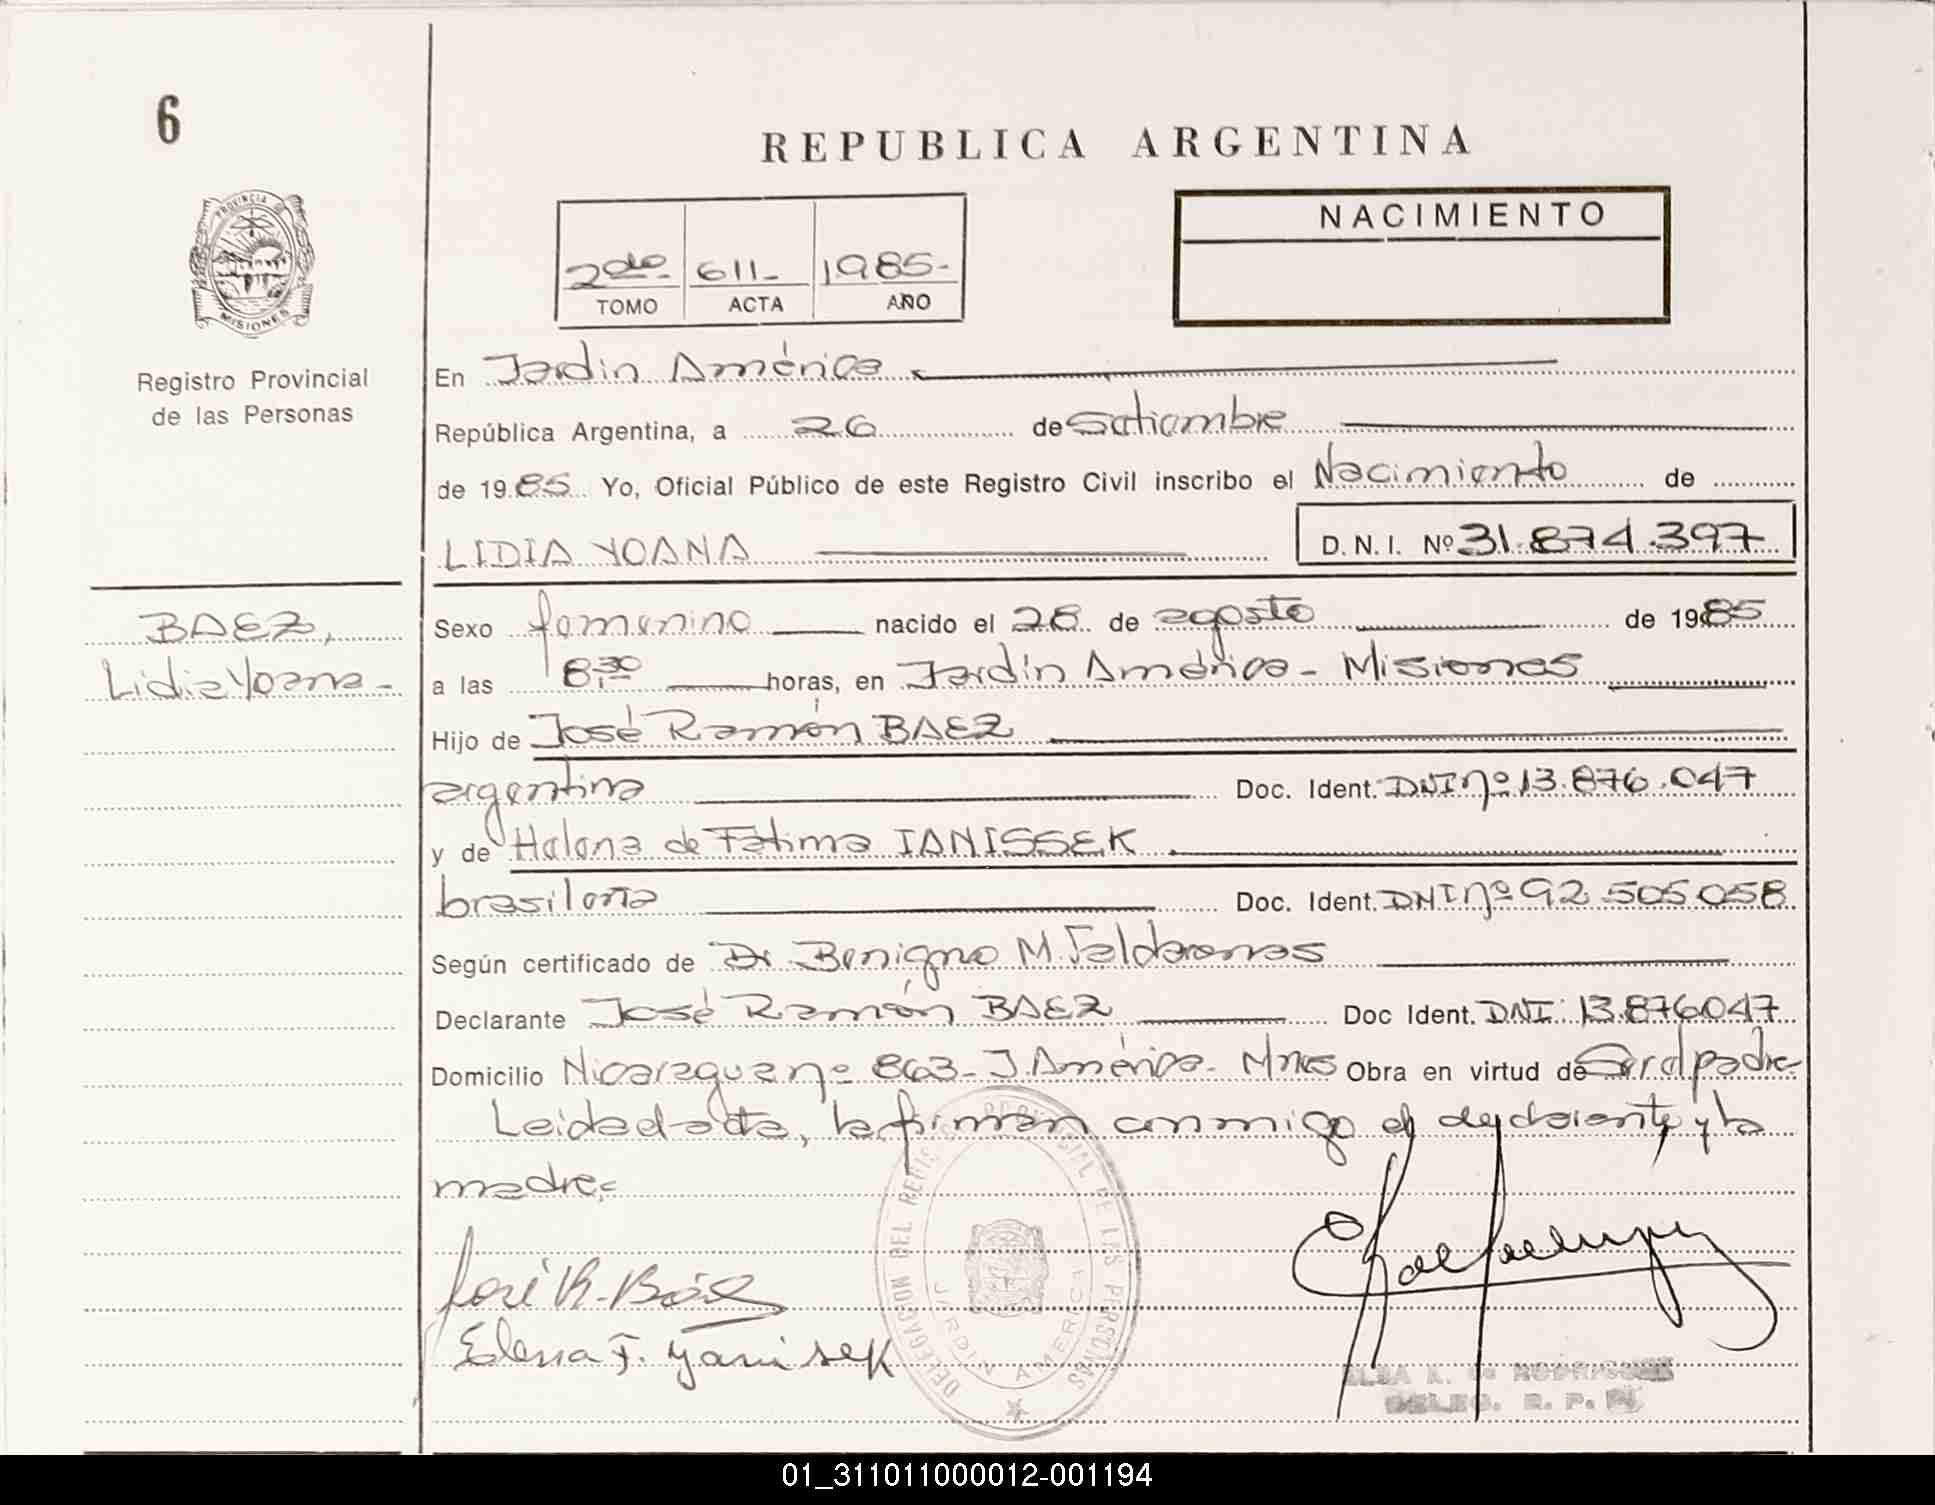 6
REPUBLICA ARGENTINA
PROVINCIA DE
MISIONES
Registro Provincial
de las Personas
2do 611- 1985-
TOMO ACTA AÑO
NACIMIENTO
En Jardín América
República Argentina, a 26 de Setiembre
de 1985 Yo, Oficial Público de este Registro Civil inscribo el Nacimiento de
LIDIA YOANA D.N.I. Nº 31.874.397
BAEZ,
Lidia Yoana-
Sexo femenino nacido el 28 de agosto de 1985
a las 8,30 horas, en Jardín América - Misiones
Hijo de José Ramón BAEZ
argentina Doc. Ident. DNI nº 13.876.047
y de Helena de Fátima IANISSEK
brasileña Doc. Ident. DNI nº 92.505.058
Según certificado de Dr Benigno M.
Declarante José Ramón BAEZ Doc Ident. DNI: 13.876047
Domicilio Nicaragua nº 863- J. América- Mnes Obra en virtud de Ser el padre-
Leida el acta, la firman conmigo el declarante y la
madre.
DELEGACION DEL REGISTRO PROVINCIAL DE LAS PERSONAS
JARDIN AMERICA
José R. Báez
Elena F. Yanissek
ELBA R. de RODRIGUEZ
DELEG. R. P. P.
01_311011000012-001194